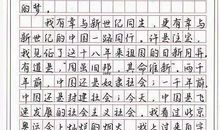 的梦。
我有幸与新世纪同生，更有幸与
新世纪的中国一路同行。许是注定，
我见证了这十八年来祖国的日新月异。
有道是，“周虽旧邦，其命维新”，两千
年前，中国还是奴隶社会；一千年前，
中国还是封建社会；今天，中国是飞
速发展的社会主义社会。我看过北京
奥运会